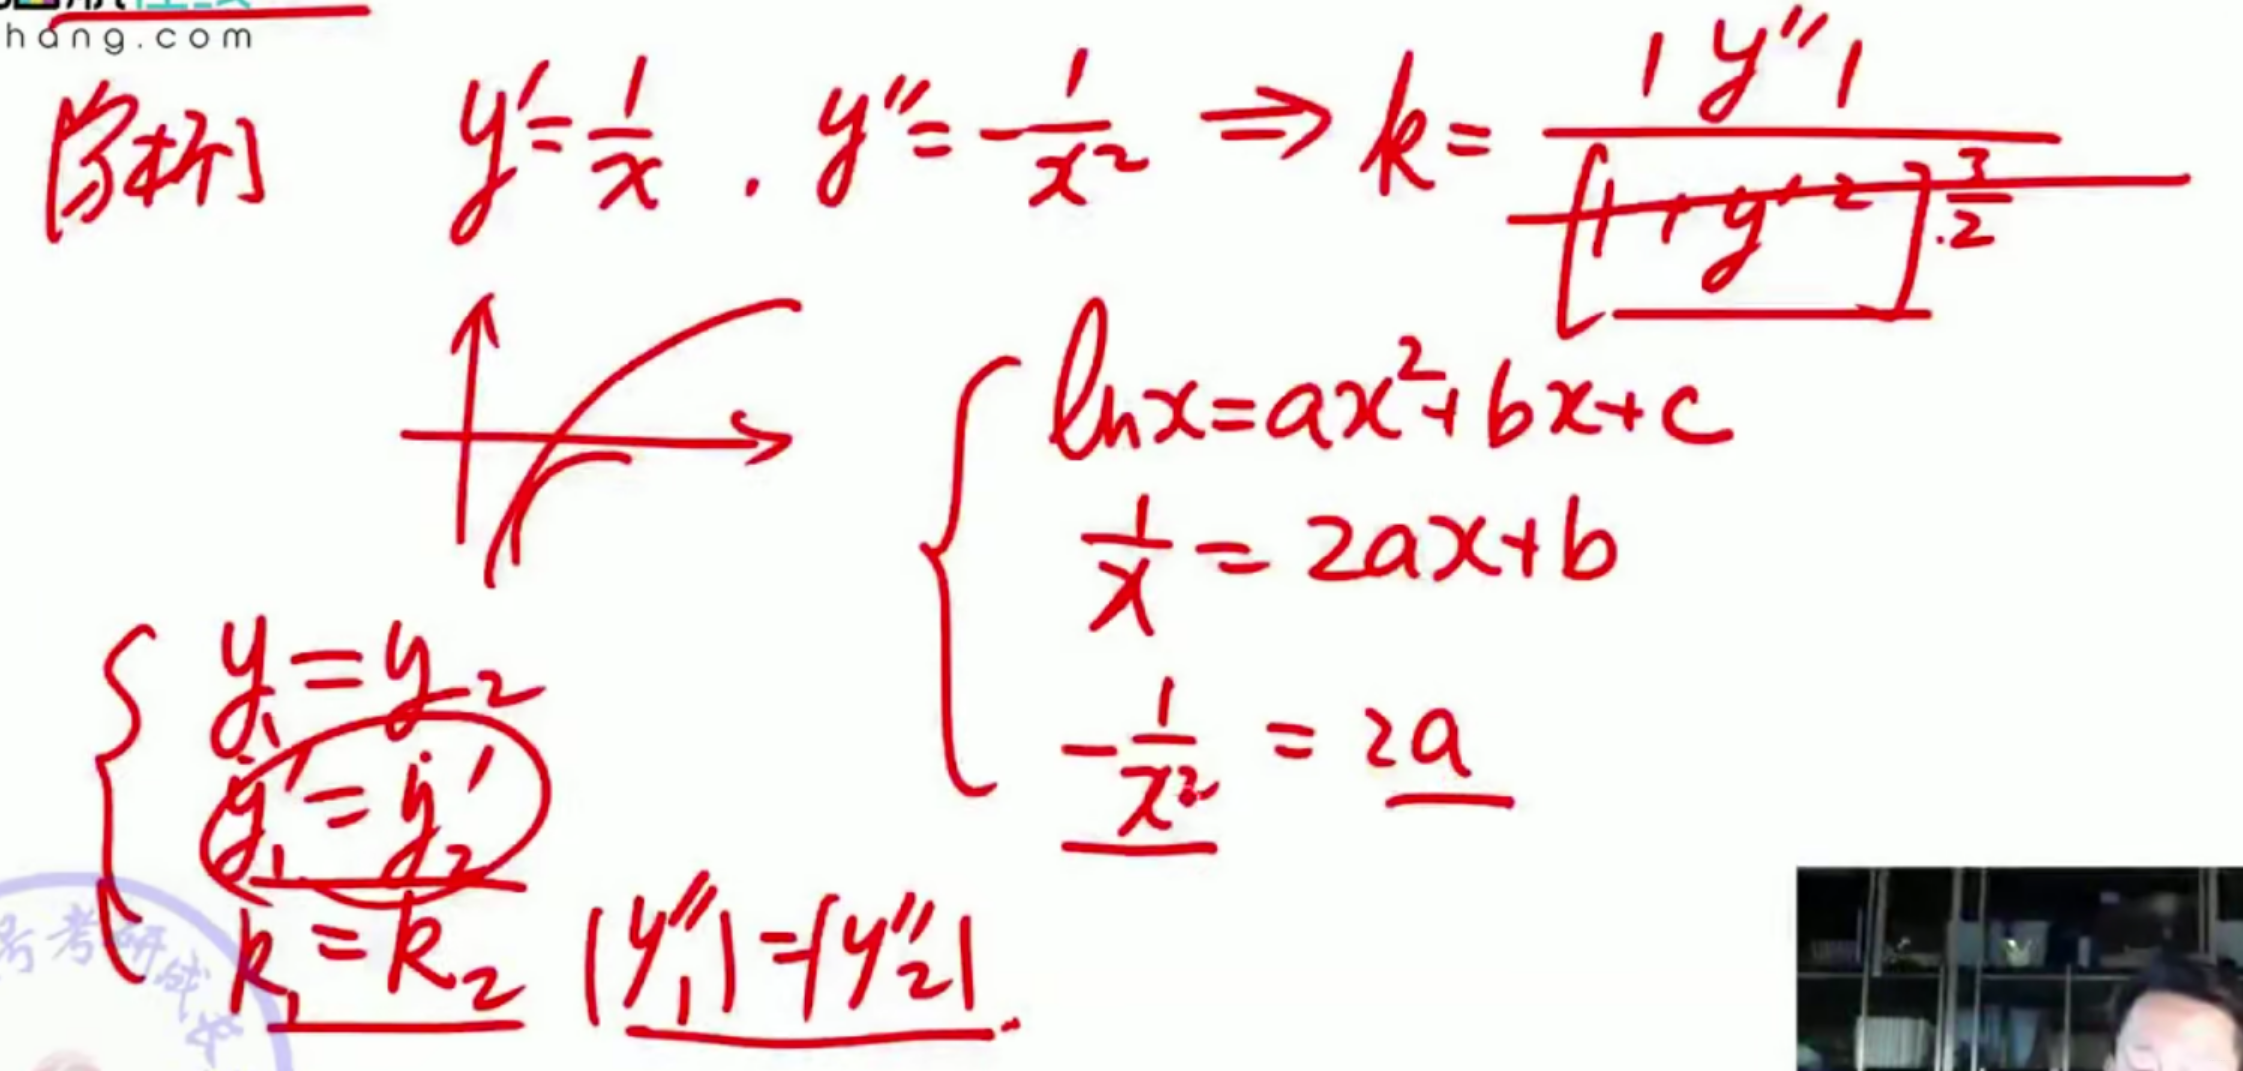 hang.com
[解析] y′=1/x . y″=-1/x² ⇒ k=|y″|/[1+y′²]^(3/2)
lnx=ax²+bx+c
1/x=2ax+b
-1/x²=2a
y₁=y₂
y₁′=y₂′
k₁=k₂ |y₁″|=|y₂″|
考研